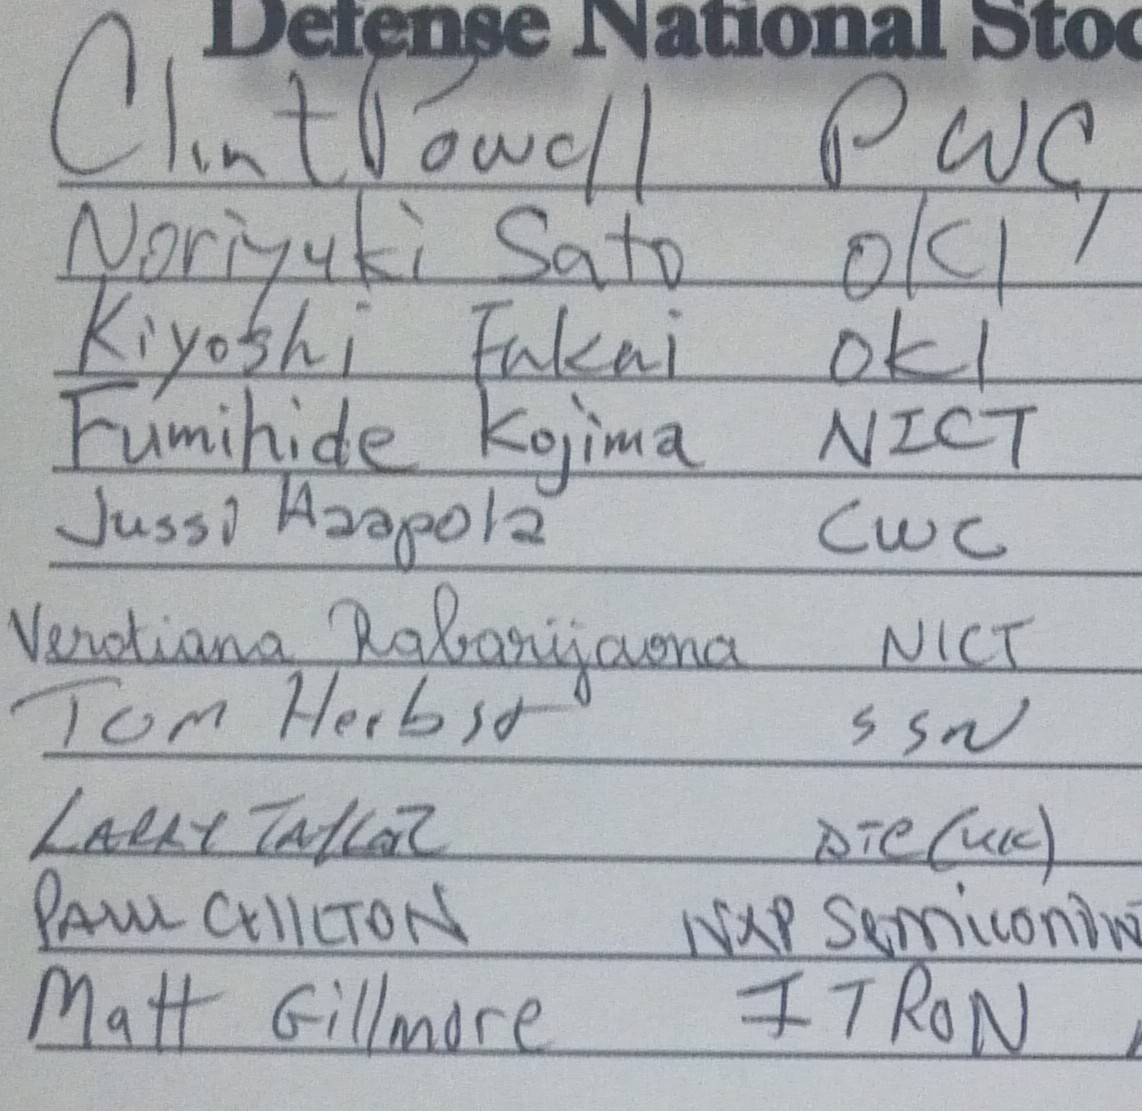 Defense National Stoc
Clint Powell PWC,
Noriyuki Sato OKI
Kiyoshi Fukai OKI
Fumihide Kojima NICT
Jussi Haapola CWC
Verotiana Rabarijaona NICT
Tom Herbst SSN
LARRY TAYLOR DTC (UK)
PAUL CHILTON NXP Semicondu
Matt Gillmore ITRON